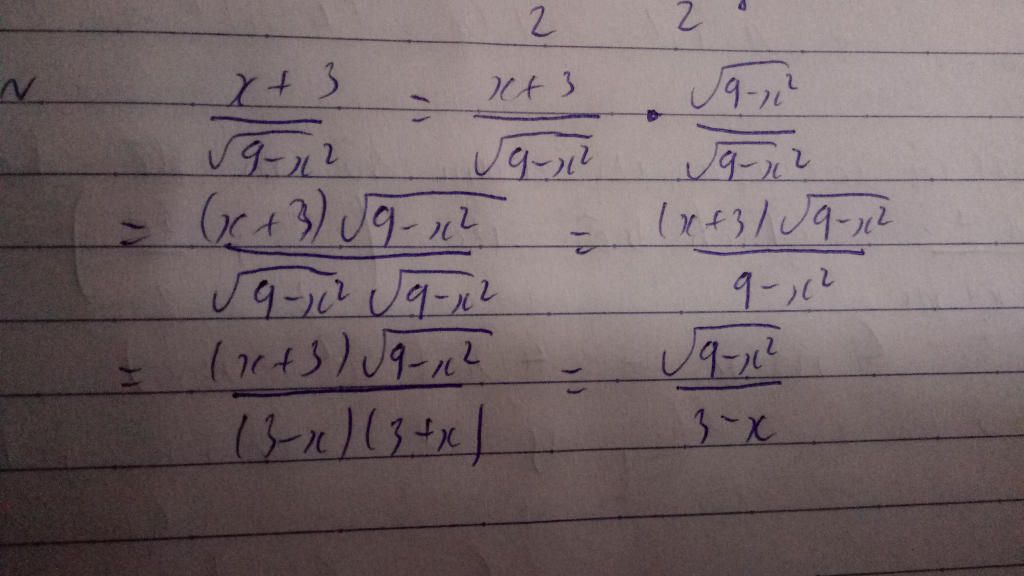 2 2
~ x+3/√(9-x²) = x+3/√(9-x²) • √(9-x²)/√(9-x²)
= (x+3)√(9-x²)/√(9-x²) √(9-x²) = (x+3)√(9-x²)/9-x²
= (x+3)√(9-x²)/(3-x)(3+x) = √(9-x²)/3-x